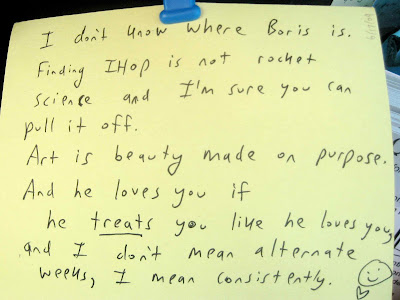 I don't know where Boris is.
Finding IHOP is not rocket
science and I'm sure you can
pull it off.
Art is beauty made on purpose.
And he loves you if
he treats you like he loves you,
and I don't mean alternate
weeks, I mean consistently.